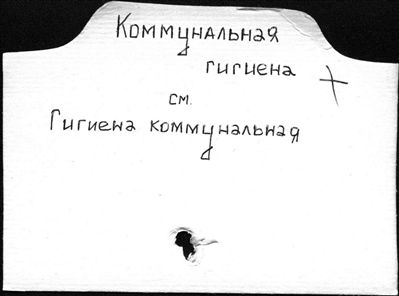 Коммунальная
гигиена
см.
Гигиена коммунальная